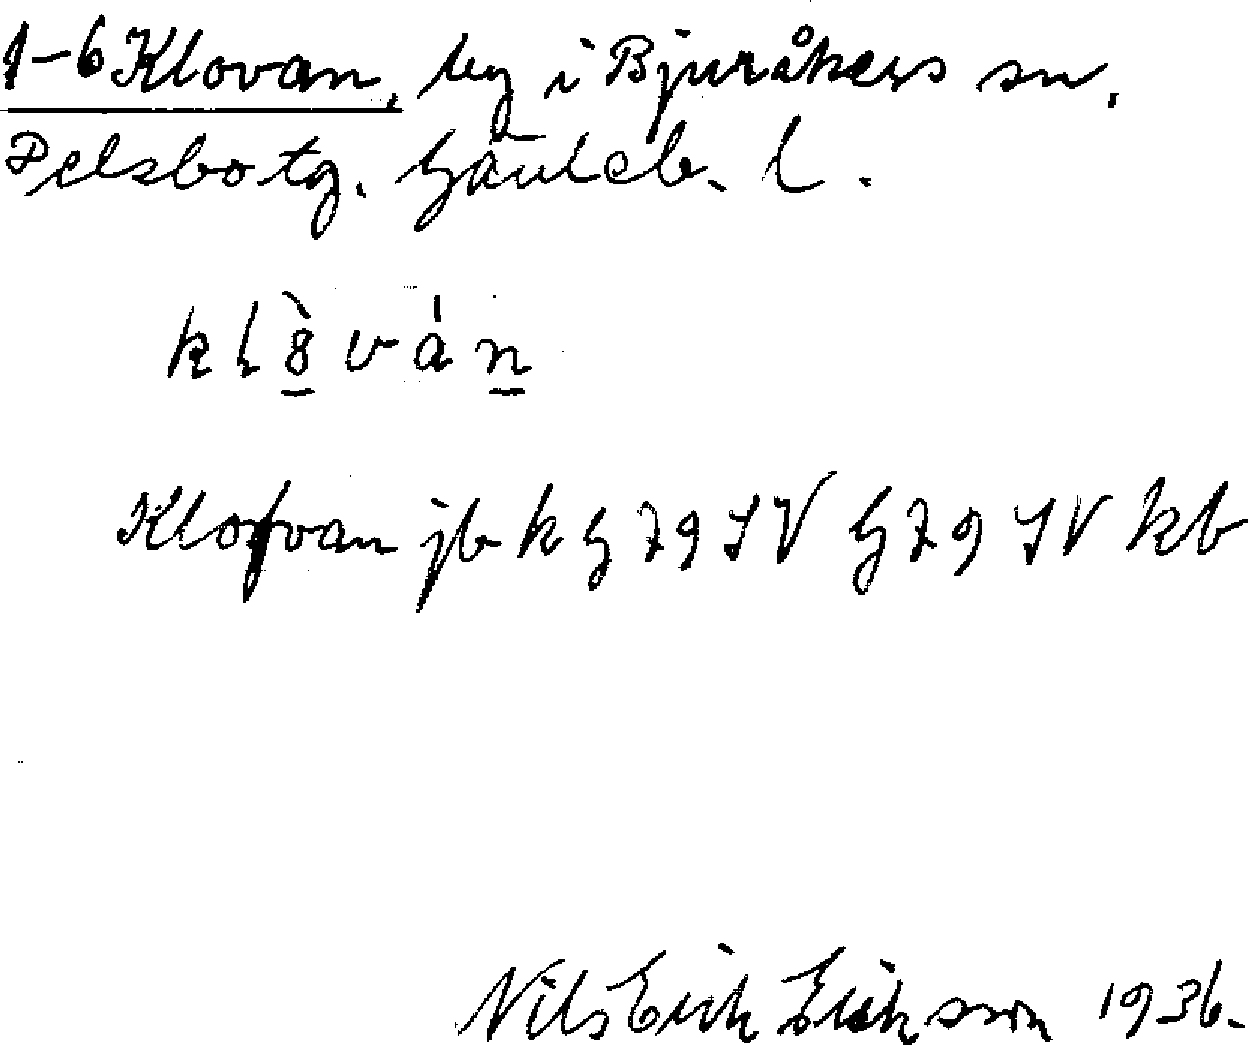 1-6 Klovan, by i Bjuråkers sn.
Delsbo tg. Gävleb. l.
kl8̠̀vàn̠
Klofvan jb k G 79 IV G 79 IV kb
Nils Erik Eriksson 1936.